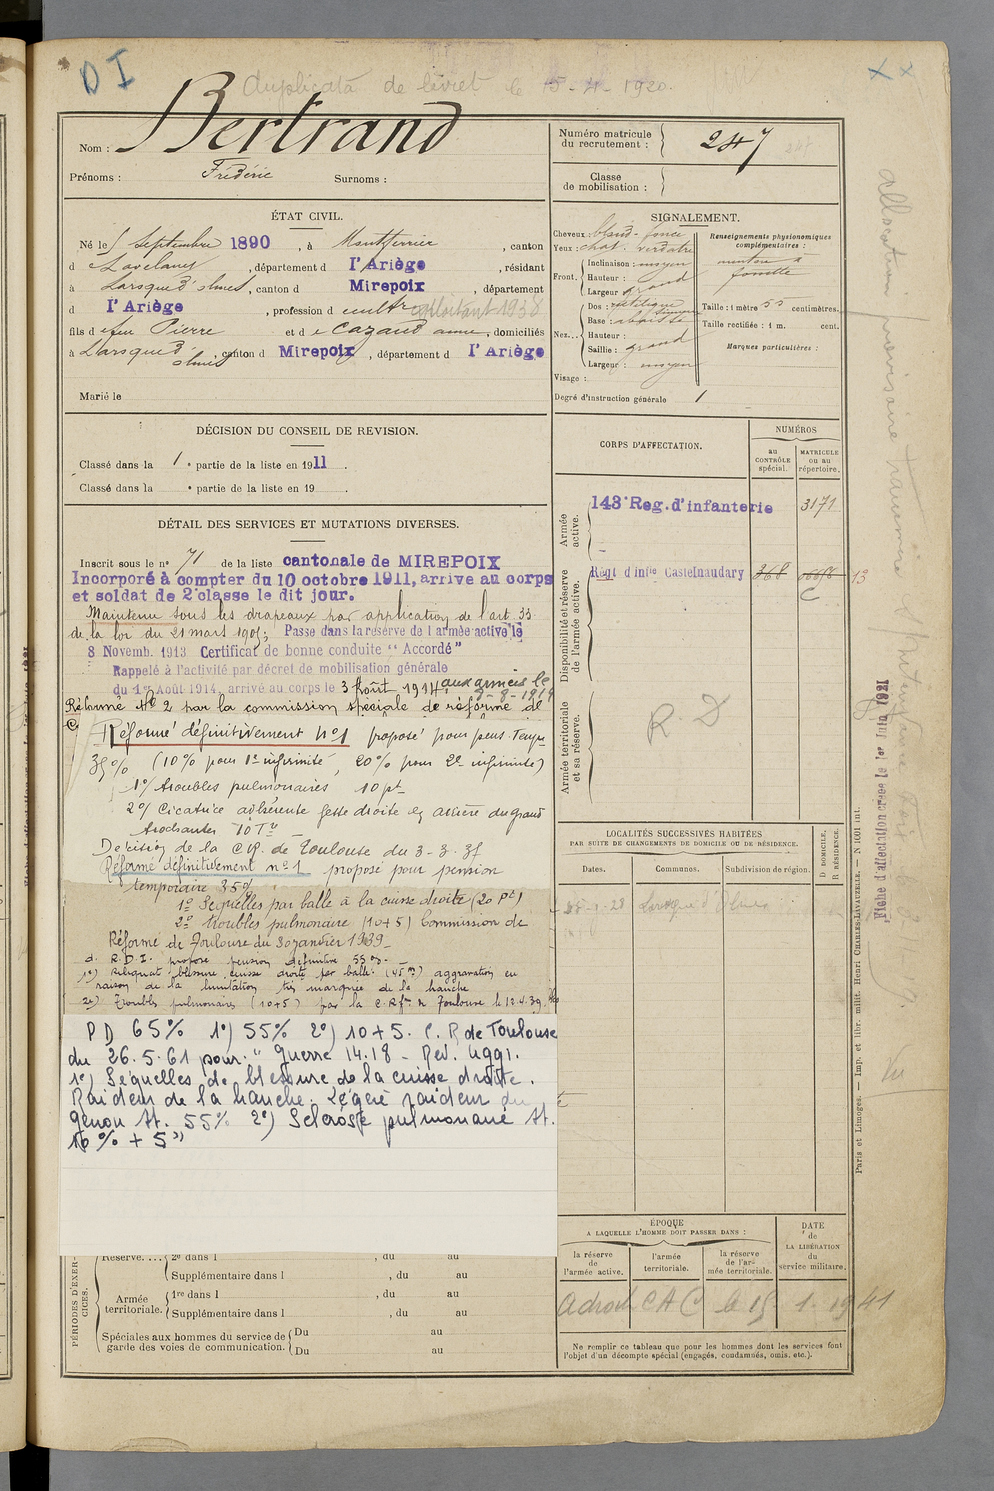 D I
duplicata de livret le 15-4-1920.
Nom : Bertrand
Prénoms : Frédéric Surnoms :
Numéro matricule du recrutement : 247 247
Classe de mobilisation :
ÉTAT CIVIL.
Né le 5 Septembre 1890, à Montferrier, canton
d Lavelanet, département d l'Ariège, résidant
à Laroque d'olmes, canton d Mirepoix, département
d l'Ariège, profession d cultr exploitant 1938
fils d e feu Pierre et d e Cazaud anne, domiciliés
à Laroque d'olmes, canton d Mirepoix, département d l'Ariège
Marié le
SIGNALEMENT.
Cheveux : blond-foncé
Yeux : chat. verdâtre
Front. Inclinaison : moyen
Hauteur : grand
Largeur : grand
Nez... Dos : rectiligne sinueux
Base : abaissée
Hauteur :
Saillie : grand
Largeur : moyen
Visage :
Renseignements physionomiques complémentaires :
menton à fossette
Taille : 1 mètre 55 centimètres.
Taille rectifiée : 1 m. cent.
Marques particulières :
Degré d'instruction générale 1
DÉCISION DU CONSEIL DE REVISION.
Classé dans la 1e partie de la liste en 1911.
Classé dans la e partie de la liste en 19 .
DÉTAIL DES SERVICES ET MUTATIONS DIVERSES.
Inscrit sous le no 71 de la liste cantonale de MIREPOIX
Incorporé à compter du 10 octobre 1911, arrive au corps
et soldat de 2e classe le dit jour.
Maintenu sous les drapeaux par application de l'art 33
de la loi du 21 mars 1905; Passe dans la réserve de l'armée active le
8 Novemb. 1913 Certificat de bonne conduite "Accordé"
Rappelé à l'activité par décret de mobilisation générale
du 1er Août 1914, arrivé au corps le 3 Août 1914, aux armées le
9-8-1914
Réformé No 2 par la commission spéciale de réforme de
Réformé définitivement no 1 proposé pour pens. temp.
35% (10% pour 1re infirmité, 20% pour 2e infirmité)
1o/ troubles pulmonaires 10 pt
2o/ Cicatrice adhérente fesse droite en arrière du grand
trochanter
Décision de la C.R. de Toulouse du 3-3-35
Réformé définitivement no 1 proposé pour pension
temporaire 35%
1o Séquelles par balle à la cuisse droite (20 pt)
2o troubles pulmonaire (10+5) Commission de
Réforme de Toulouse du 30 janvier 1939
d. R.D.I. propose pension définitive 55%
1o) reliquat blessure cuisse droite par balle (45%) aggravation en
raison de la limitation très marquée de la hanche
2o) Troubles pulmonaires (10+5) par la C. Rf. de Toulouse le 12.4.39.
PD 65% 1o) 55% 2o) 10+5. C. R de Toulouse
du 26.5.61 pour: " Guerre 14.18 - Rev. aggr.
1o) Séquelles de blessure de la cuisse droite.
Raideur de la hanche. Légère raideur du
genou St. 55% 2o) Sclérose pulmonaire St.
10% + 5"
CORPS D'AFFECTATION.
NUMÉROS
au CONTRÔLE spécial.
MATRICULE ou au répertoire.
Armée active.
143e Reg. d'infanterie 3171
Disponibilité et réserve de l'armée active.
Régt d'infie Castelnaudary 368 C 13
Armée territoriale et sa réserve.
R. D
LOCALITÉS SUCCESSIVES HABITÉES
PAR SUITE DE CHANGEMENTS DE DOMICILE OU DE RÉSIDENCE.
Dates. Communes. Subdivision de région. D DOMICILE, R RÉSIDENCE.
Laroque d'Olmes
ÉPOQUE
A LAQUELLE L'HOMME DOIT PASSER DANS :
la réserve de l'armée active.
l'armée territoriale.
la réserve de l'armée territoriale.
DATE de LA LIBÉRATION du service militaire.
CAC le 15-1-1941
Ne remplir ce tableau que pour les hommes dont les services font
l'objet d'un décompte spécial (engagés, condamnés, omis, etc.).
PÉRIODES D'EXERCICES.
Réserve.... 2e dans l , du au
Supplémentaire dans l , du au
Armée territoriale. 1re dans l , du au
Supplémentaire dans l , du au
Spéciales aux hommes du service de garde des voies de communication. Du au
Du au
Paris et Limoges. — Imp. et libr. milit. Henri CHARLES-LAVAUZELLE. — N 1001 int.
Fiche d'affectation créée le 1er Juin 1921
allocation provisoire